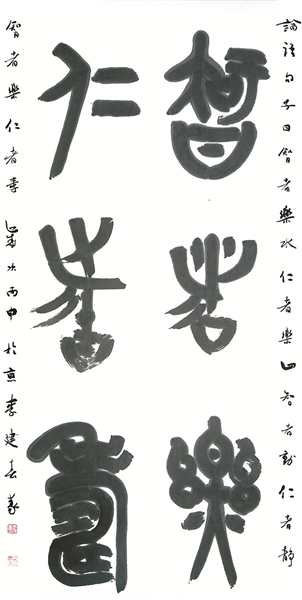 論語句子曰智者樂水仁者樂山智者動仁者靜
智者樂
仁者壽
智者樂仁者壽歲次丙申於京李建春篆